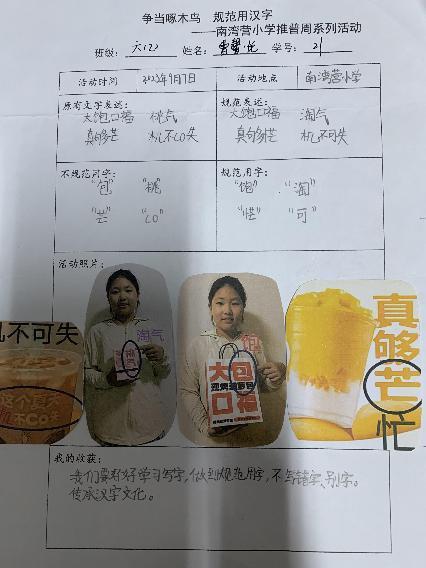 争当啄木鸟 规范用汉字
——南湾营小学推普周系列活动
班级: 六(2) 姓名: 学号: 21
活动时间 2022年9月7日 活动地点 南湾营小学
原有文字表述:
大饱口福 桃气
真够芒 机不CO失
规范表述:
大饱口福 淘气
真够忙 机不可失
不规范用字:
"包" "桃"
"芒" "CO"
规范用字:
"饱" "淘"
"忙" "可"
活动照片:
机不可失
不CO失
淘气
饱
大包
口福
真够芒
忙
我的收获:
我们要好好学习写字,做到规范用字,不写错字、别字。
传承汉字文化。